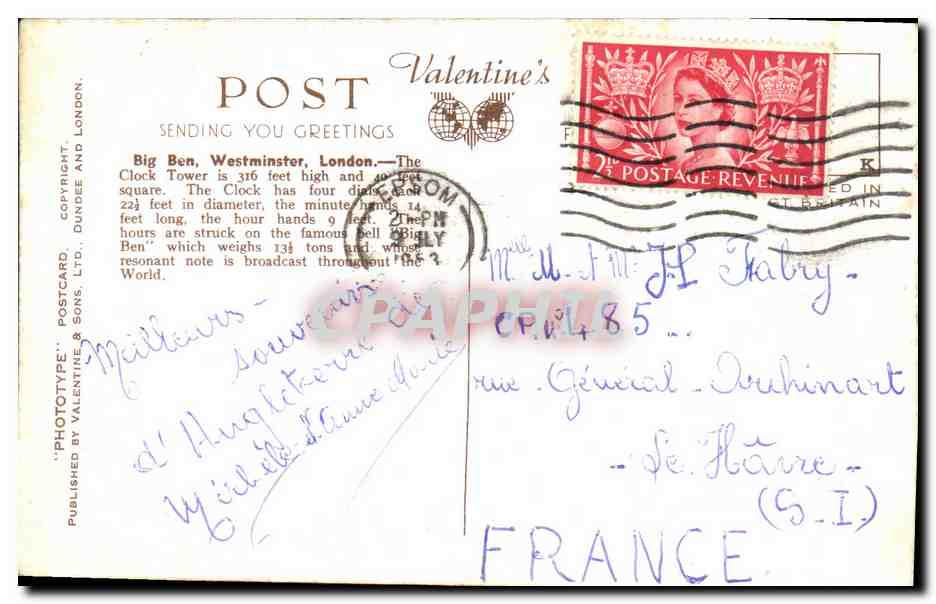 POST
SENDING YOU GREETINGS
Valentine's
Big Ben, Westminster, London.—The
Clock Tower is 316 feet high and 40 feet
square. The Clock has four dials each
22½ feet in diameter, the minute hands 14
feet long, the hour hands 9 feet. The
hours are struck on the famous bell "Big
Ben" which weighs 13½ tons and whose
resonant note is broadcast throughout the
World.
"PHOTOTYPE" POSTCARD. COPYRIGHT.
PUBLISHED BY VALENTINE & SONS, LTD., DUNDEE AND LONDON.
EPSOM
2 PM
JLY
1953
2½D POSTAGE·REVENUE
K
ED IN
BRITAIN
CPAPHIL
Meilleurs
souvenirs
d'Angleterre de
Michèle et Anne Marie
M. et Mme Fabry
CP. N° 485
rue Général
Le Hâvre
(S.I)
FRANCE